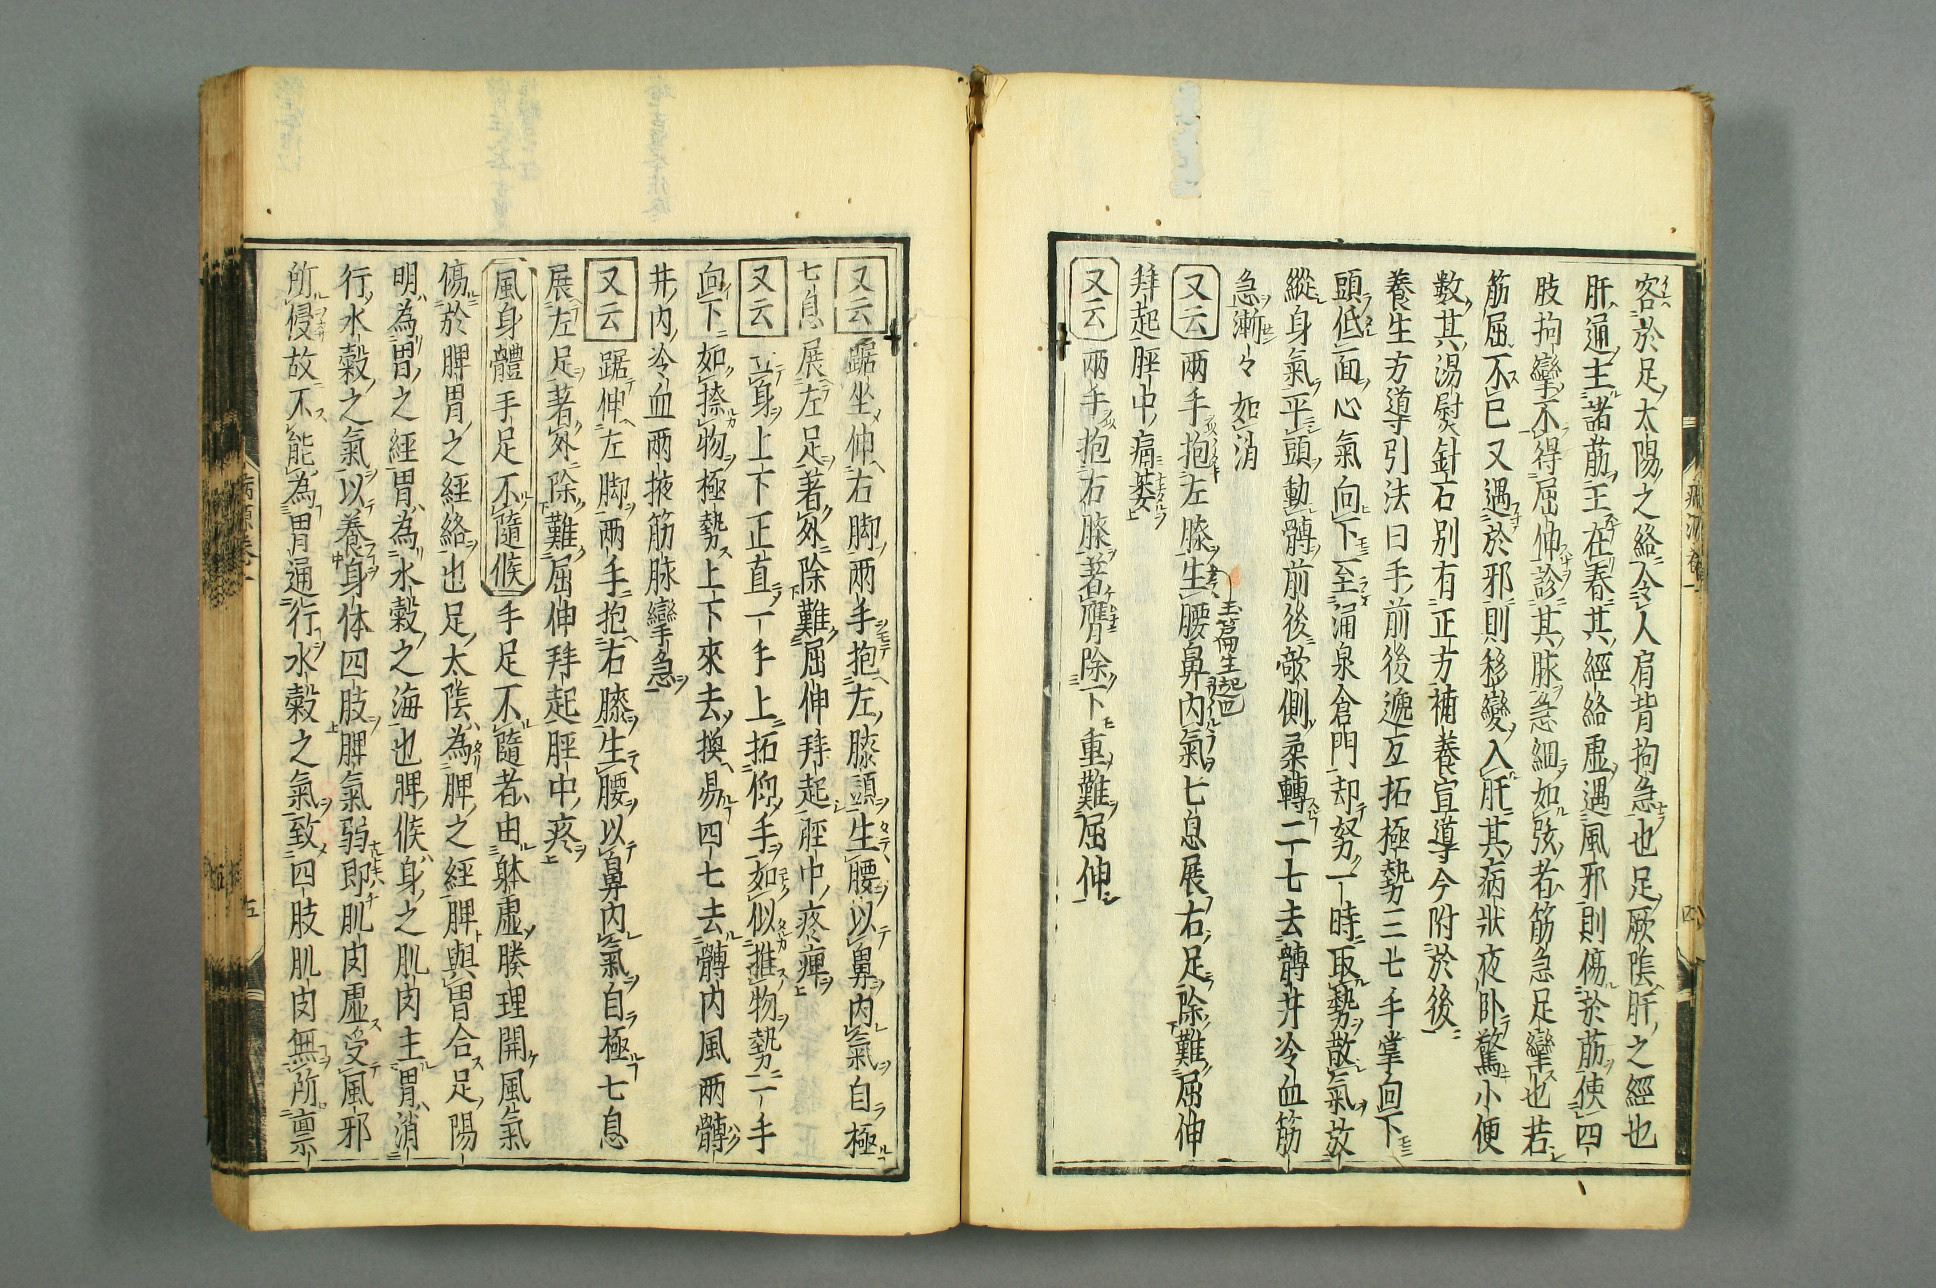 客於足太陽之絡令人肩背拘急也足厥陰肝之經也
肝通主諸筋王在春其經絡虛遇風邪則傷於筋使四
肢拘攣不得屈伸診其脉急細如弦者筋急足攣也若
筋屈不已又遇於邪則移變入肝其病狀夜卧驚小便
數其湯熨針石別有正方補養宣導今附於後
養生方導引法曰手前後遞互拓極勢三七手掌向下
頭低面心氣向下至涌泉倉門却努一時取勢散氣放
縱身氣平頭動髆前後欹側柔轉二七去髆井冷血筋
急漸々如消
又云兩手抱左膝生腰鼻內氣七息展右足除難屈伸
玉篇生起也
拜起脛中痛萎
又云兩手抱右膝著膺除下重難屈伸
病源卷一
四
又云踞坐伸右脚兩手抱左膝頭生腰以鼻內氣自極
七息展左足著外除難屈伸拜起脛中疼痺
又云立身上下正直一手上拓仰手如似推物勢一手
向下如捺物極勢上下來去換易四七去髆內風兩髆
井內冷血兩掖筋脉攣急
又云踞伸左脚兩手抱右膝生腰以鼻內氣自極七息
展左足著外除難屈伸拜起脛中疼
風身體手足不隨候手足不隨者由躰虛腠理開風氣
傷於脾胃之經絡也足太陰為脾之經脾與胃合足陽
明為胃之經胃為水穀之海也脾候身之肌肉主胃消
行水穀之氣以養身体四肢脾氣弱即肌肉虛受風邪
所侵故不能為胃通行水穀之氣致四肢肌肉無所稟
病源卷一
五